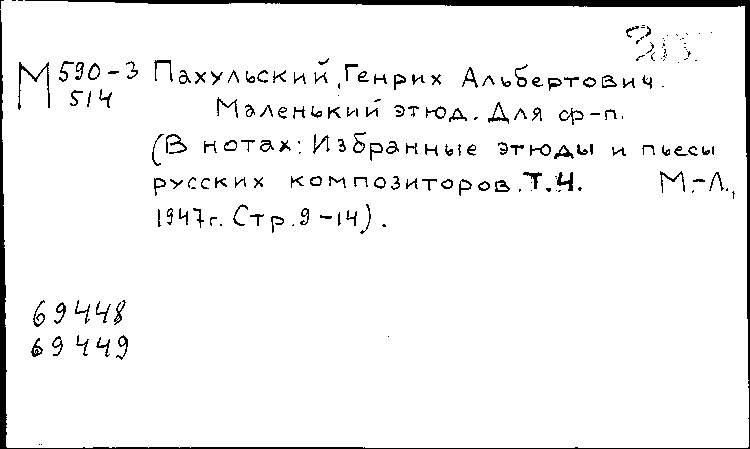 М 590-3 Пахульский, Генрих Альбертович.
514 Маленький этюд. Для ф-п.
(В нотах: Избранные этюды и пьесы
русских композиторов. Т.4. М.-Л.,
1947г. Стр. 9-14).
69448
69449